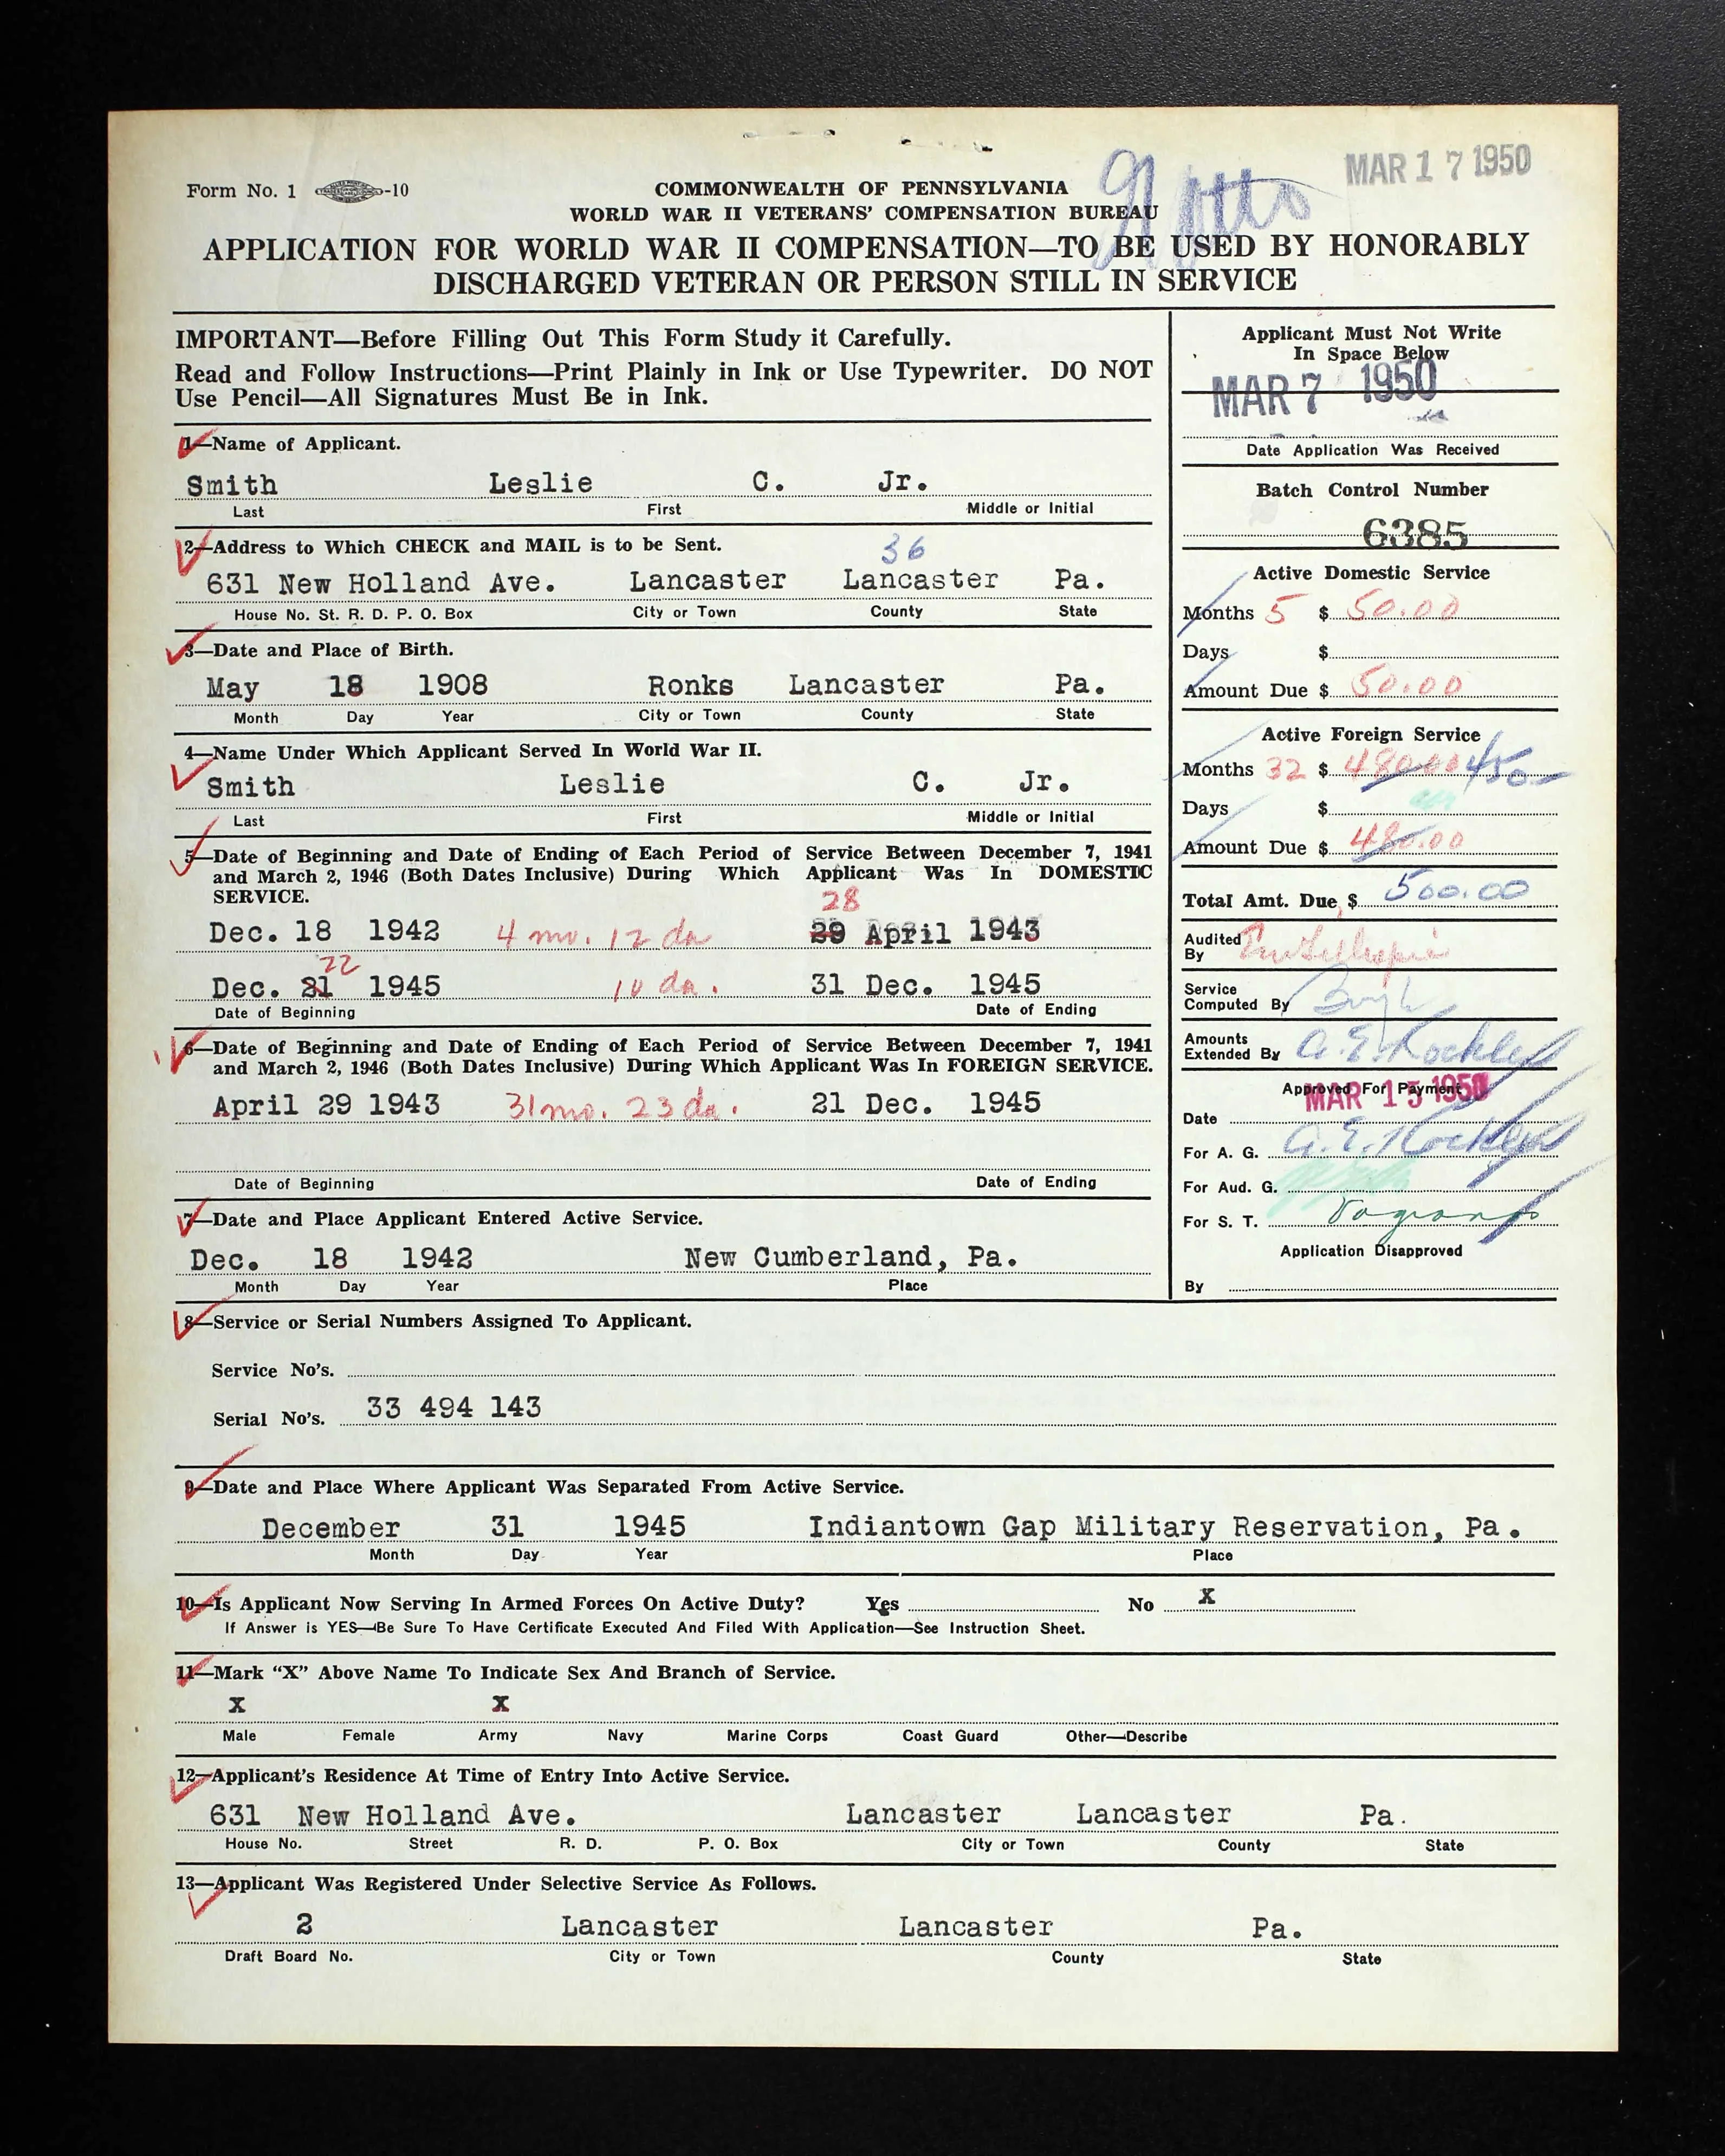 MAR 17 1950
Form No. 1 -10
COMMONWEALTH OF PENNSYLVANIA
WORLD WAR II VETERANS' COMPENSATION BUREAU
APPLICATION FOR WORLD WAR II COMPENSATION—TO BE USED BY HONORABLY
DISCHARGED VETERAN OR PERSON STILL IN SERVICE
IMPORTANT—Before Filling Out This Form Study it Carefully.
Read and Follow Instructions—Print Plainly in Ink or Use Typewriter. DO NOT
Use Pencil—All Signatures Must Be in Ink.
1—Name of Applicant.
Smith Leslie C. Jr.
Last First Middle or Initial
2—Address to Which CHECK and MAIL is to be Sent.
36
631 New Holland Ave. Lancaster Lancaster Pa.
House No. St. R. D. P. O. Box City or Town County State
3—Date and Place of Birth.
May 18 1908 Ronks Lancaster Pa.
Month Day Year City or Town County State
4—Name Under Which Applicant Served In World War II.
Smith Leslie C. Jr.
Last First Middle or Initial
5—Date of Beginning and Date of Ending of Each Period of Service Between December 7, 1941
and March 2, 1946 (Both Dates Inclusive) During Which Applicant Was In DOMESTIC
SERVICE.
28
Dec. 18 1942 4 mo. 12 da 29 April 1943
22
Dec. 21 1945 10 da. 31 Dec. 1945
Date of Beginning Date of Ending
6—Date of Beginning and Date of Ending of Each Period of Service Between December 7, 1941
and March 2, 1946 (Both Dates Inclusive) During Which Applicant Was In FOREIGN SERVICE.
April 29 1943 31 mo. 23 da. 21 Dec. 1945
Date of Beginning Date of Ending
7—Date and Place Applicant Entered Active Service.
Dec. 18 1942 New Cumberland, Pa.
Month Day Year Place
Applicant Must Not Write
In Space Below
MAR 7 1950
Date Application Was Received
Batch Control Number
6385
Active Domestic Service
Months 5 $ 50.00
Days $
Amount Due $ 50.00
Active Foreign Service
Months 32 $ 480.00 450-
Days $
Amount Due $ 480.00
Total Amt. Due $ 500.00
Audited
By
Service
Computed By
Amounts
Extended By
Approved For Payment
MAR 15 1950
Date
For A. G.
For Aud. G.
For S. T.
Application Disapproved
By
8—Service or Serial Numbers Assigned To Applicant.
Service No's.
Serial No's. 33 494 143
9—Date and Place Where Applicant Was Separated From Active Service.
December 31 1945 Indiantown Gap Military Reservation, Pa.
Month Day Year Place
10—Is Applicant Now Serving In Armed Forces On Active Duty? Yes No X
If Answer is YES—Be Sure To Have Certificate Executed And Filed With Application—See Instruction Sheet.
11—Mark "X" Above Name To Indicate Sex And Branch of Service.
X X
Male Female Army Navy Marine Corps Coast Guard Other—Describe
12—Applicant's Residence At Time of Entry Into Active Service.
631 New Holland Ave. Lancaster Lancaster Pa.
House No. Street R. D. P. O. Box City or Town County State
13—Applicant Was Registered Under Selective Service As Follows.
2 Lancaster Lancaster Pa.
Draft Board No. City or Town County State